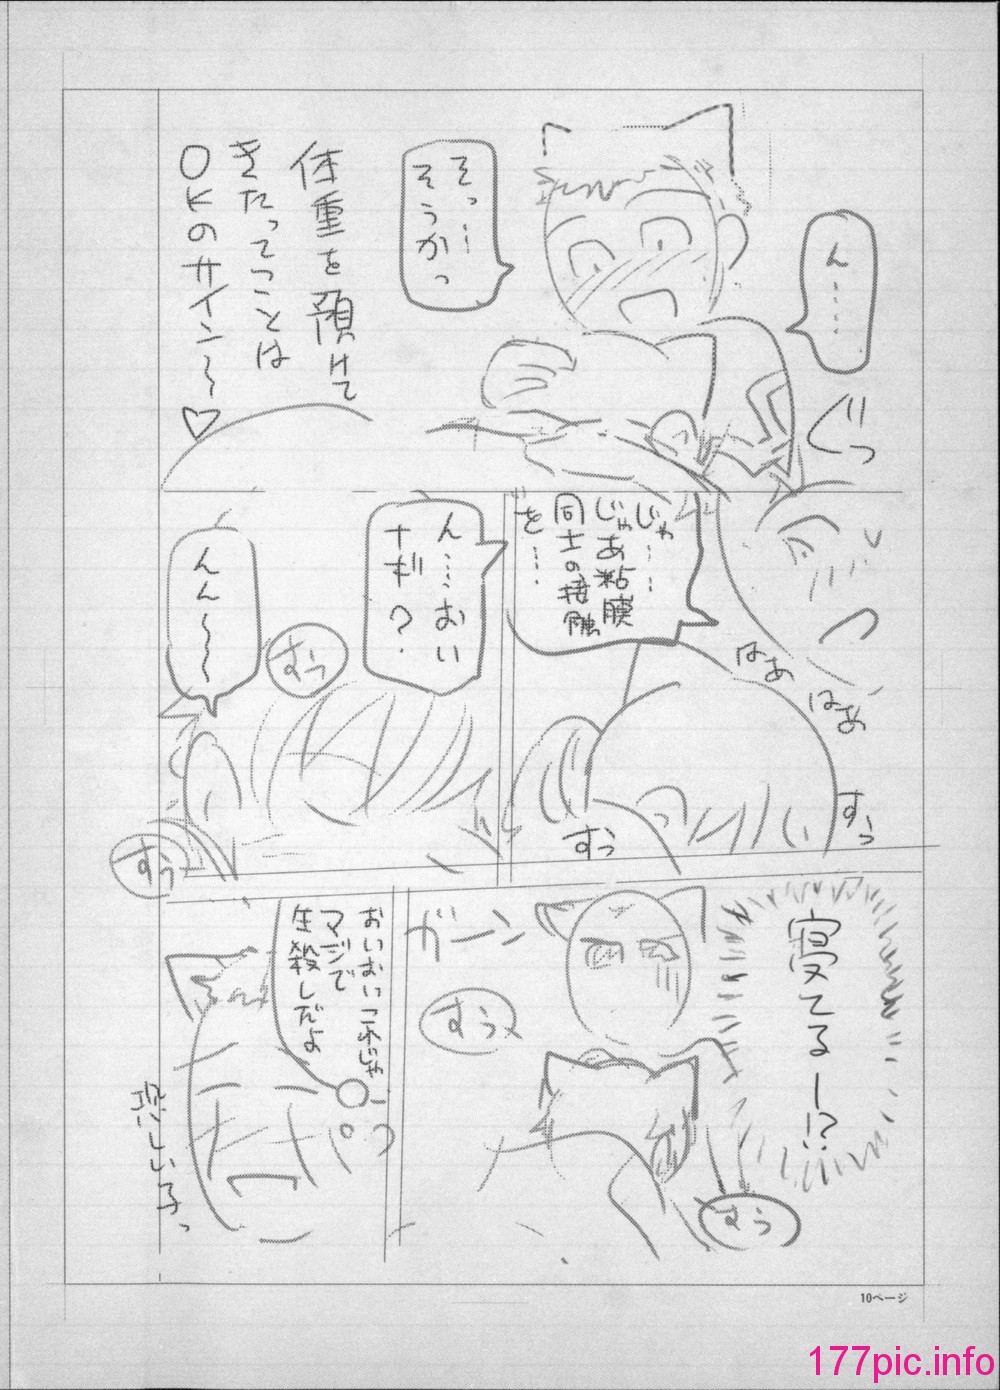 ん……
ぐっ
そっ…
そうかっ
体重を預けて
きたってことは
OKのサイン〜〜♡
じゃ……
じゃあ粘膜
同士の接触
を…
はあ
はあ
すっ
すっ
ん…おい
ナギ?
すぅ
んん〜〜
すぅ
寝てるー!?
ガーン
すぅ
すぅ
おいおいこれじゃ
マジで
生殺しだよ
恐しい子っ
10ページ
177pic.info